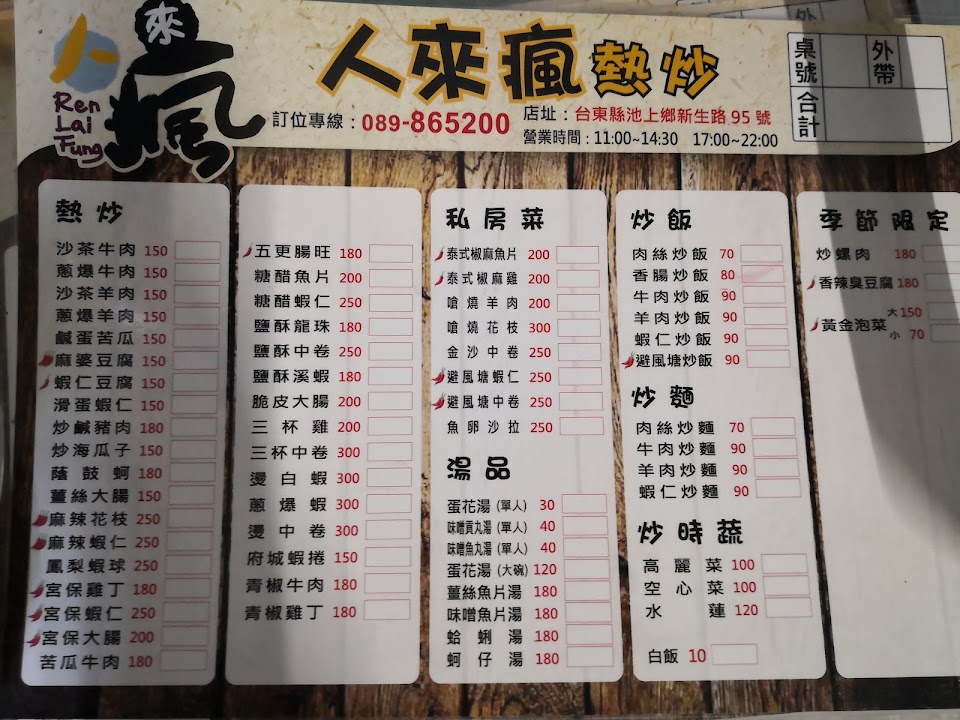 來瘋
Ren
Lai
Fung
人來瘋 熱炒
訂位專線：089-865200
店址：台東縣池上鄉新生路 95 號
營業時間：11:00~14:30 17:00~22:00
桌號
外帶
合計
外
熱炒
沙茶牛肉 150
蔥爆牛肉 150
沙茶羊肉 150
蔥爆羊肉 150
鹹蛋苦瓜 150
麻婆豆腐 150
蝦仁豆腐 150
滑蛋蝦仁 150
炒鹹豬肉 180
炒海瓜子 150
蔭鼓蚵 180
薑絲大腸 150
麻辣花枝 250
麻辣蝦仁 250
鳳梨蝦球 250
宮保雞丁 180
宮保蝦仁 250
宮保大腸 200
苦瓜牛肉 180
五更腸旺 180
糖醋魚片 200
糖醋蝦仁 250
鹽酥龍珠 180
鹽酥中卷 250
鹽酥溪蝦 180
脆皮大腸 200
三杯雞 200
三杯中卷 300
燙白蝦 300
蔥爆蝦 300
燙中卷 300
府城蝦捲 150
青椒牛肉 180
青椒雞丁 180
私房菜
泰式椒麻魚片 200
泰式椒麻雞 200
嗆燒羊肉 200
嗆燒花枝 300
金沙中卷 250
避風塘蝦仁 250
避風塘中卷 250
魚卵沙拉 250
湯品
蛋花湯 (單人) 30
味噌貢丸湯 (單人) 40
味噌魚丸湯 (單人) 40
蛋花湯 (大碗) 120
薑絲魚片湯 180
味噌魚片湯 180
蛤蜊湯 180
蚵仔湯 180
炒飯
肉絲炒飯 70
香腸炒飯 80
牛肉炒飯 90
羊肉炒飯 90
蝦仁炒飯 90
避風塘炒飯 90
炒麵
肉絲炒麵 70
牛肉炒麵 90
羊肉炒麵 90
蝦仁炒麵 90
炒時蔬
高麗菜 100
空心菜 100
水蓮 120
白飯 10
季節限定
炒螺肉 180
香辣臭豆腐 180
黃金泡菜 大 150
小 70